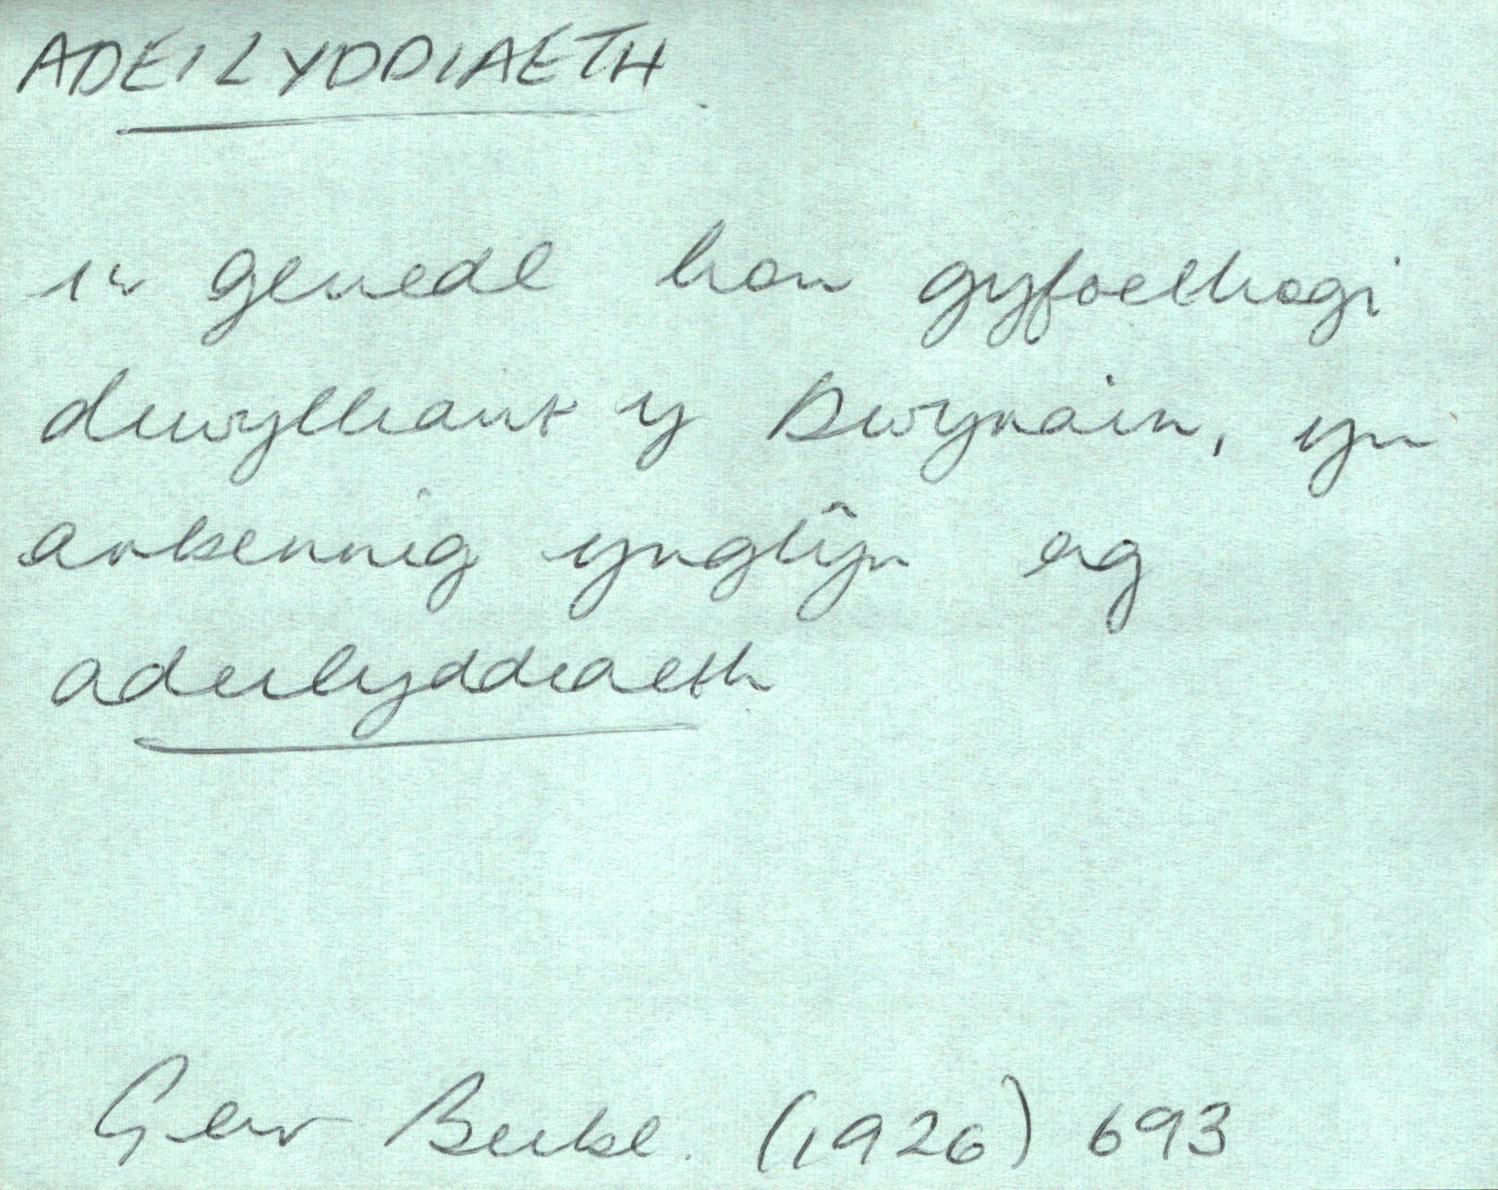 ADEILYDDIAETH
i'r genedl hon gyfoethogi
diwylliant y Dwyrain, yn
arbennig ynglŷn ag
adeilyddiaeth
Geir Beibl. (1926) 693